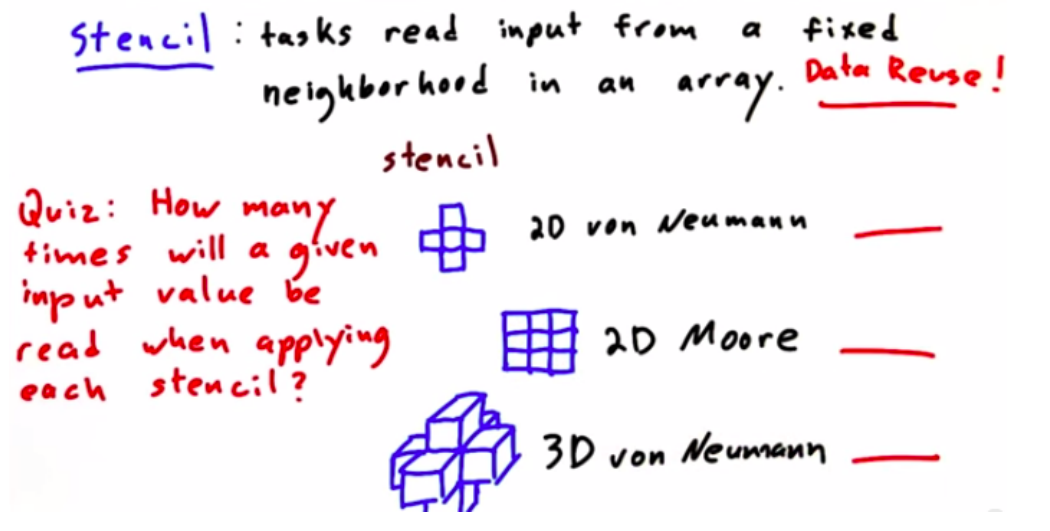 Stencil : tasks read input from a fixed
neighborhood in an array. Data Reuse!
stencil
Quiz: How many
times will a given
input value be
read when applying
each stencil?
2D von Neumann
2D Moore
3D von Neumann